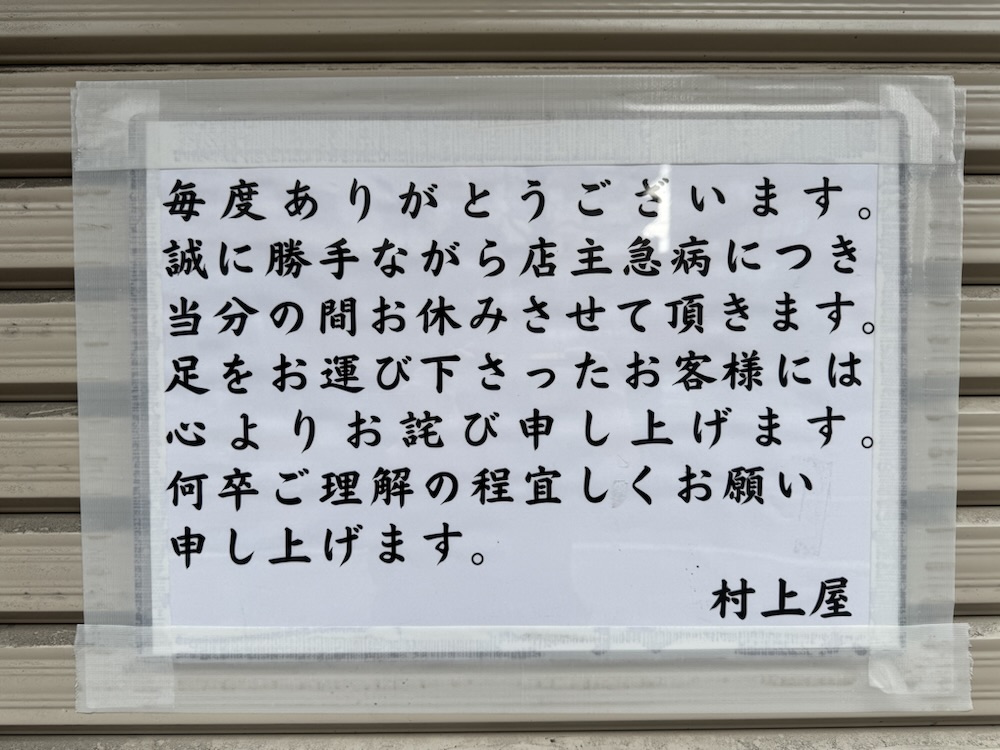 毎度ありがとうございます。
誠に勝手ながら店主急病につき
当分の間お休みさせて頂きます。
足をお運び下さったお客様には
心よりお詫び申し上げます。
何卒ご理解の程宜しくお願い
申し上げます。
村上屋